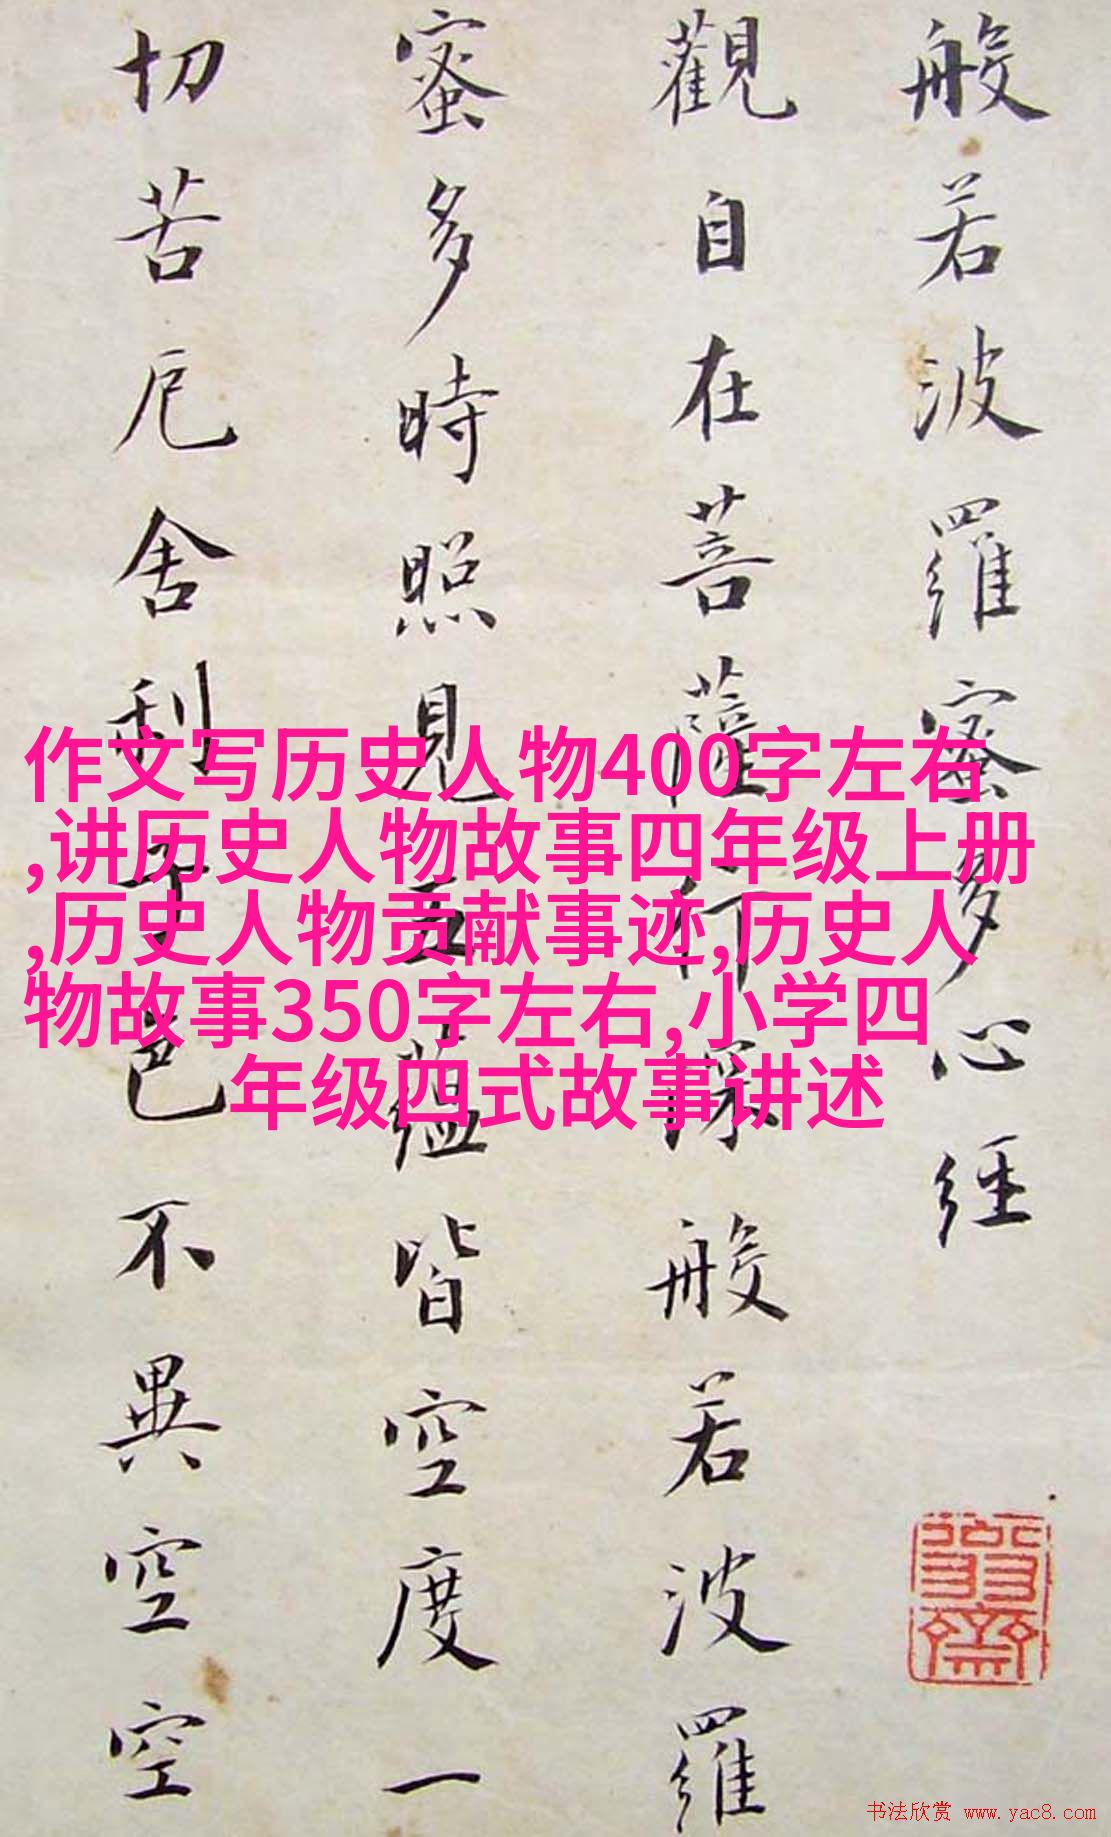 般若波羅蜜多心經
觀自在菩薩行深般若波羅
蜜多時照見五蘊皆空度一
切苦厄舍利子色不異空空
作文写历史人物400字左右
,讲历史人物故事四年级上册
,历史人物贡献事迹,历史人
物故事350字左右,小学四
年级四式故事讲述
书法欣赏 www.yac8.com